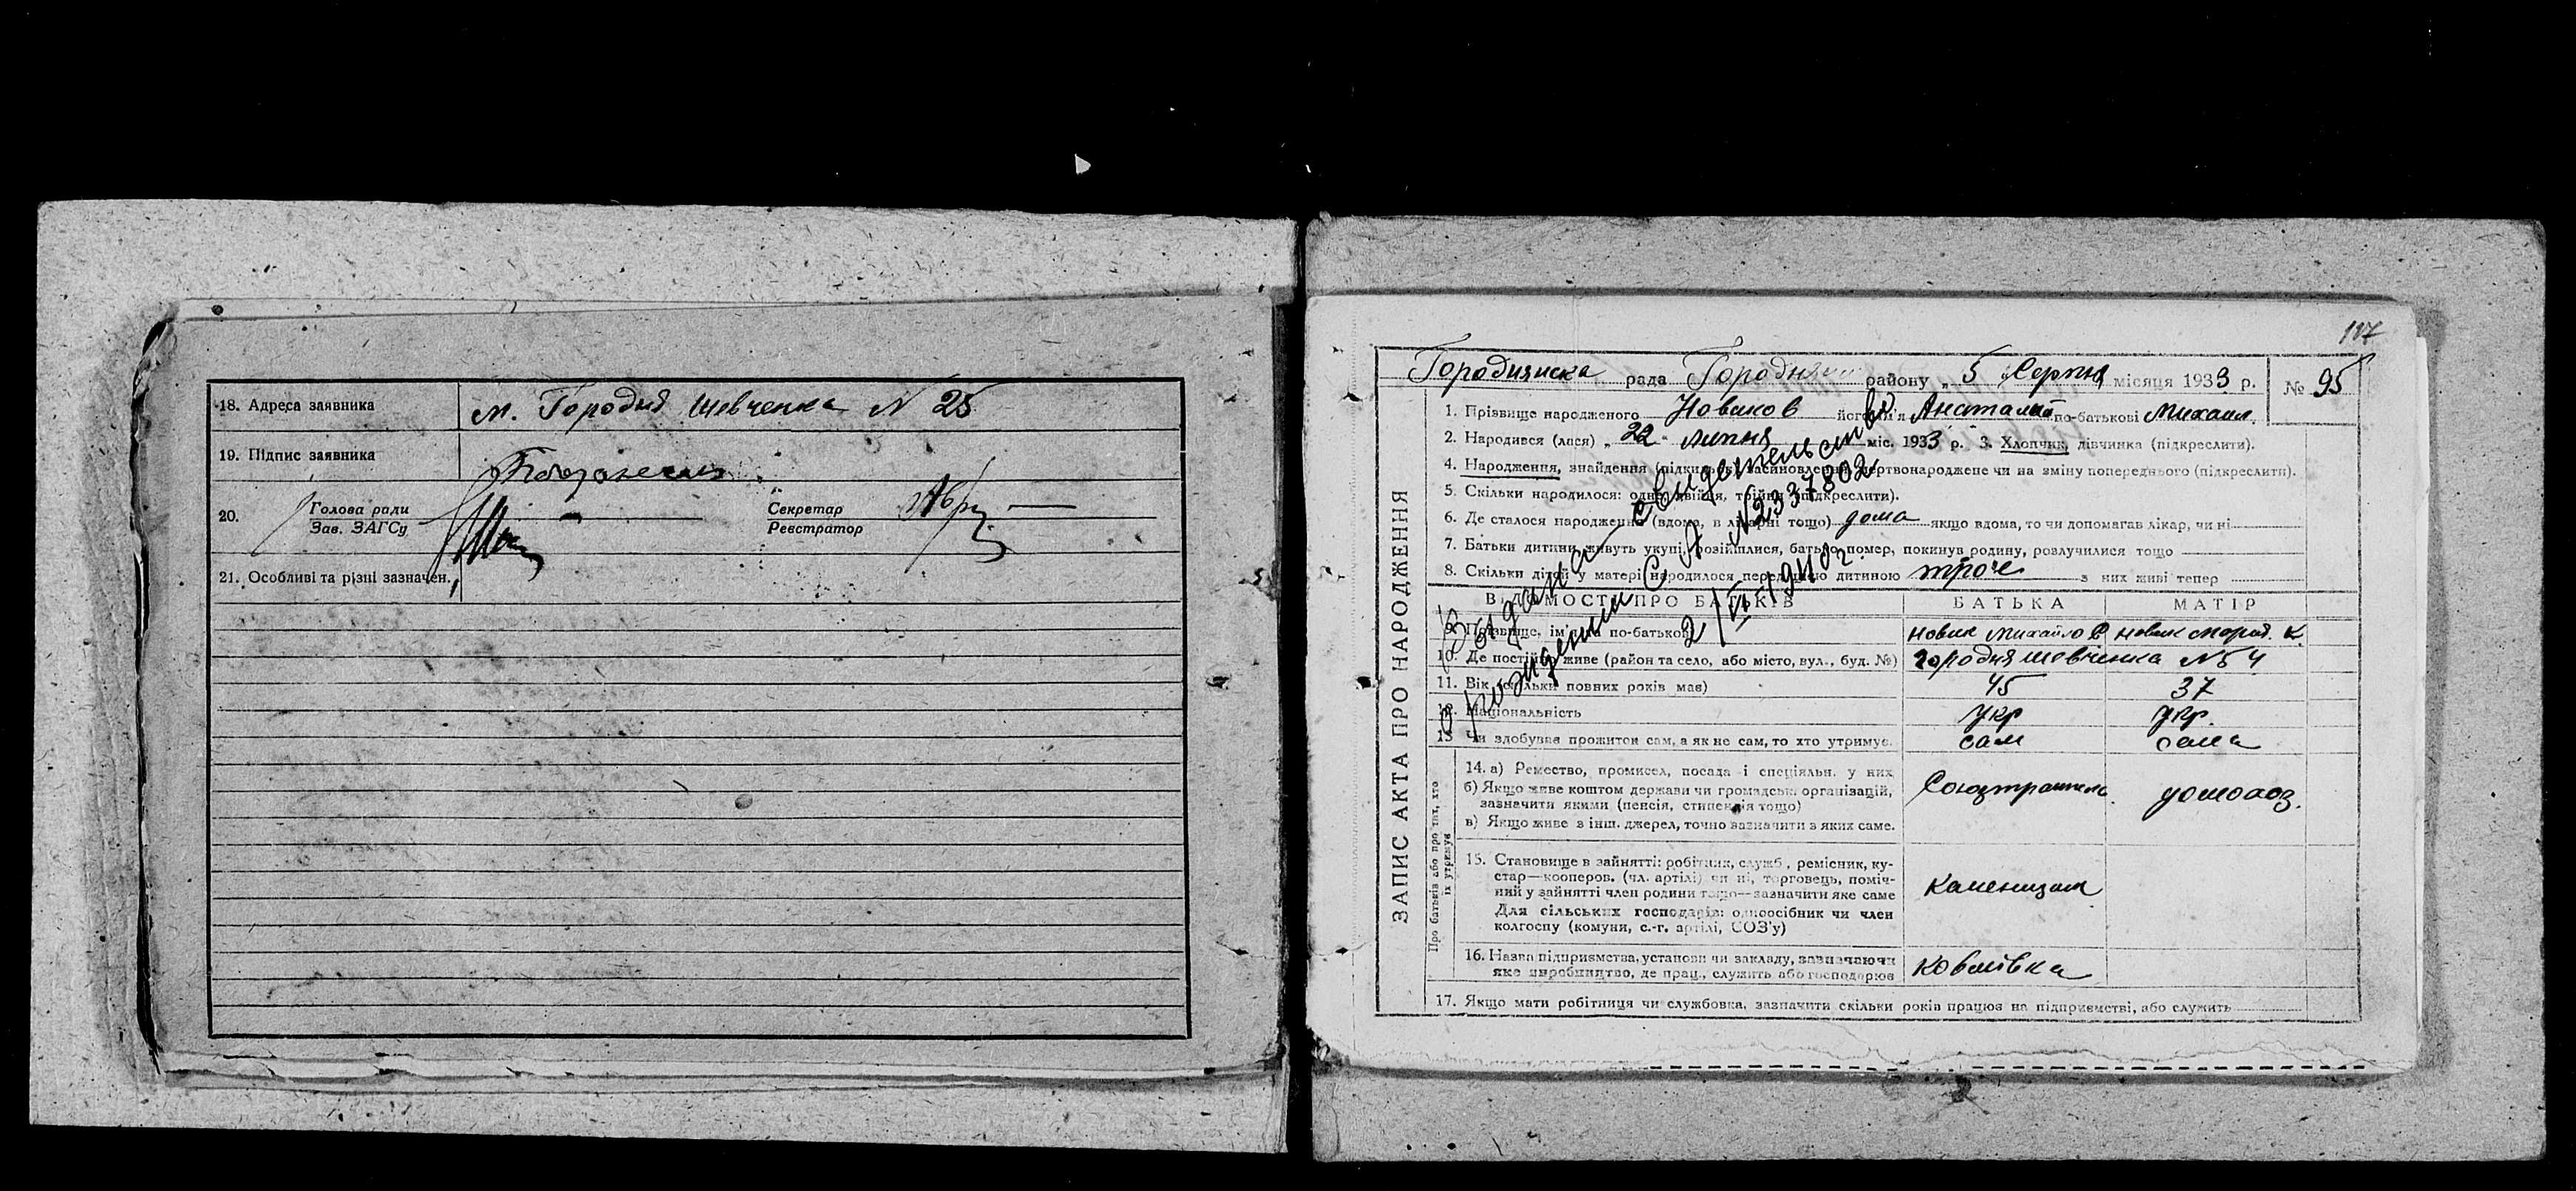 18. Адреса заявника м. Городня Шевченка N 25
19. Підпис заявника
20. Голова ради
Зав. ЗАГСу
Секретар
Реєстратор
21. Особливі та різні зазначен.
117
рада Городня району „ 5 Серпня місяця 1933 р. № 95
ЗАПИС АКТА ПРО НАРОДЖЕННЯ
1. Прізвище народженого Новиков його ім'я Анатолий по-батькові Михаил.
2. Народився (лася) „ 22 " липня міс. 1933 р. 3. Хлопчик, дівчинка (підкреслити).
4. Народження, знайдення (підкидьок) засиновлення, мертвонароджене чи на зміну попереднього (підкреслити).
5. Скільки народилося: одно, двійня, трійня (підкреслити).
6. Де сталося народження (вдома, в лікарні тощо) дома якщо вдома, то чи допомагав лікар, чи ні
7. Батьки дитини живуть укупі, розійшлися, батько помер, покинув родину, розлучилися тощо
8. Скільки дітей у матері народилося перед цією дитиною троє з них живі тепер
Выдана свидетельство
о рождении С А N 2337802
2/IV 1941 г.
ВІДОМОСТІ ПРО БАТЬКІВ БАТЬКА МАТІР
9. Прізвище, ім'я та по-батькові Новик Михайло Новик К.
10. Де постійно живе (район та село, або місто, вул., буд. №) Городня Шевченка N 54
11. Вік (скільки повних років має) 45 37
12. Національність Укр Укр.
13. Чи здобував прожиток сам, а як не сам, то хто утримує. сам сама
Про батьків або про тих, хто їх утримує
14. а) Ремество, промисел, посада і спеціяльн. у них
б) Якщо живе коштом держави чи громадськ. організацій,
зазначити якими (пенсія, стипендія тощо)
в) Якщо живе з інш. джерел, точно зазначити з яких саме.
домохоз.
15. Становище в зайнятті: робітник, служб., ремісник, ку-
стар—кооперов. (чл. артілі) чи ні, торговець, поміч-
ний у зайнятті член родини тощо—зазначити яке саме
Для сільських господарів: одноосібник чи член
колгоспу (комуни, с.-г. артілі, СОЗ'у)
каменщик
16. Назва підприємства, установи чи закладу, зазначаючи
яке виробництво, де прац., служить або господарює
17. Якщо мати робітниця чи службовка, зазначити скільки років працює на підприємстві, або служить